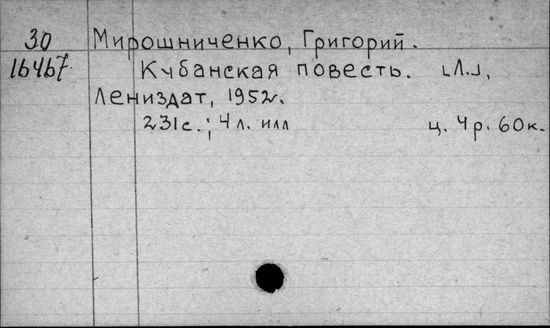 30 Мирошниченко, Григорий.
16467 Кубанская повесть. [Л.],
Лениздат, 1952.
231с.; 4л. илл ц. 4р. 60к.